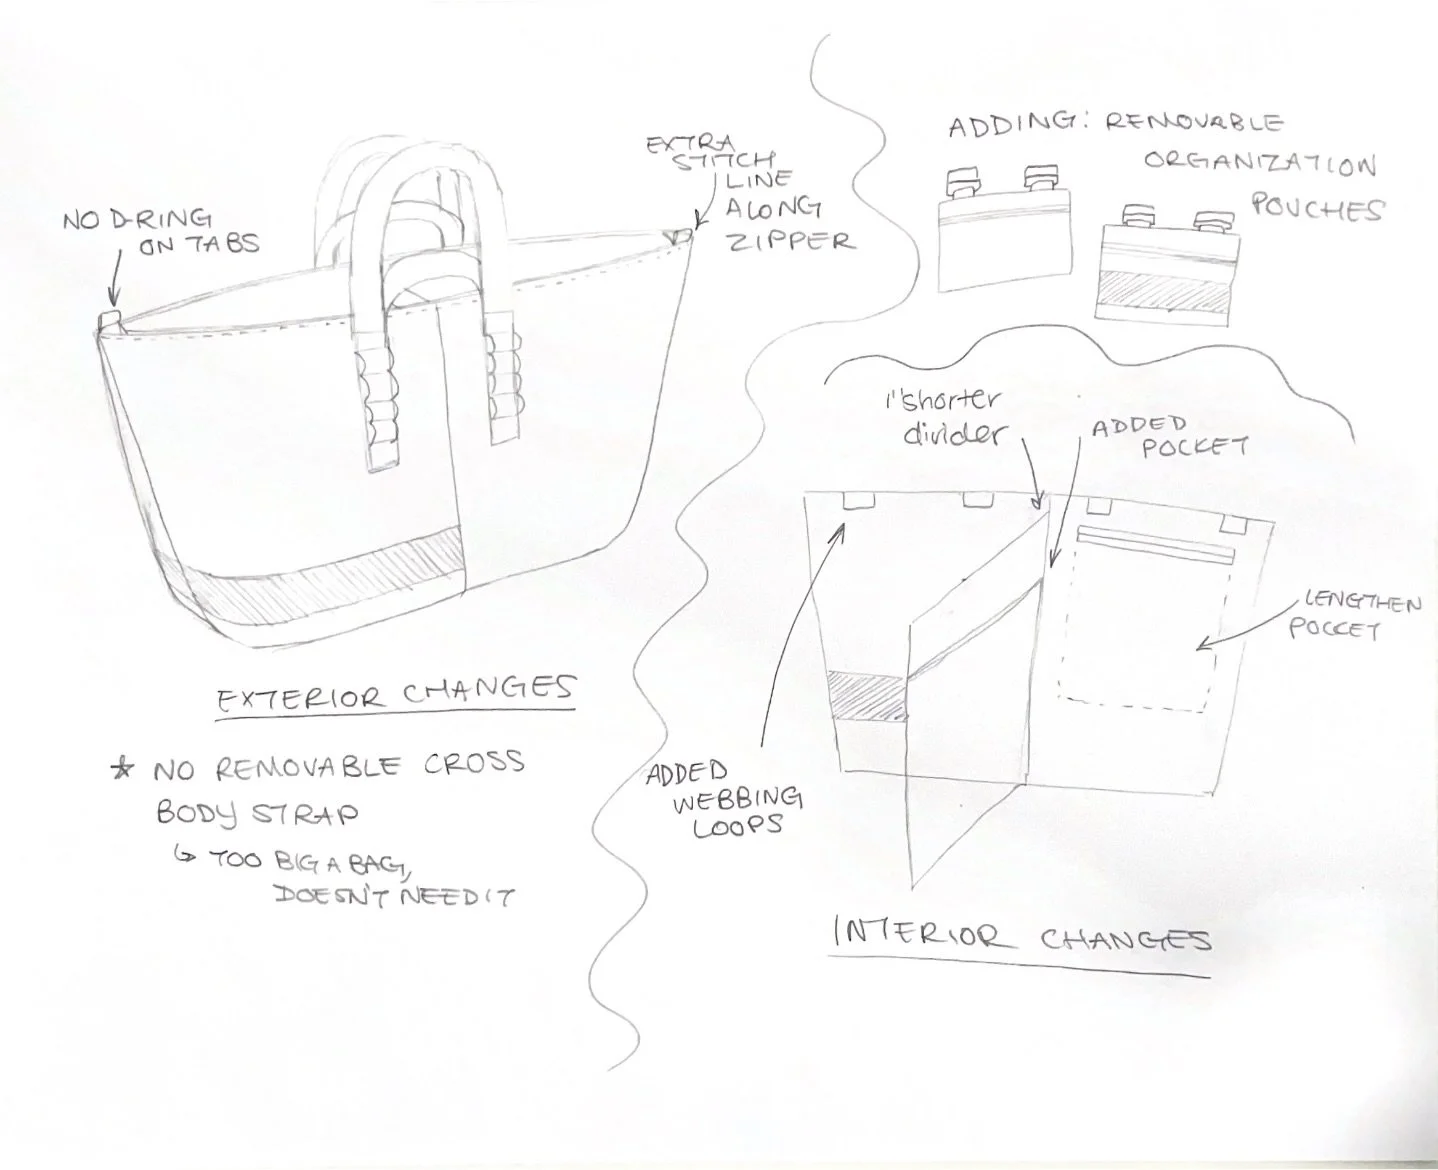 NO D-RING
ON TABS
EXTRA
STITCH
LINE
ALONG
ZIPPER
EXTERIOR CHANGES
* NO REMOVABLE CROSS
BODY STRAP
↳ TOO BIG A BAG,
DOESN'T NEED IT
ADDING: REMOVABLE
ORGANIZATION
POUCHES
1" shorter
divider
ADDED
POCKET
LENGTHEN
POCKET
ADDED
WEBBING
LOOPS
INTERIOR CHANGES